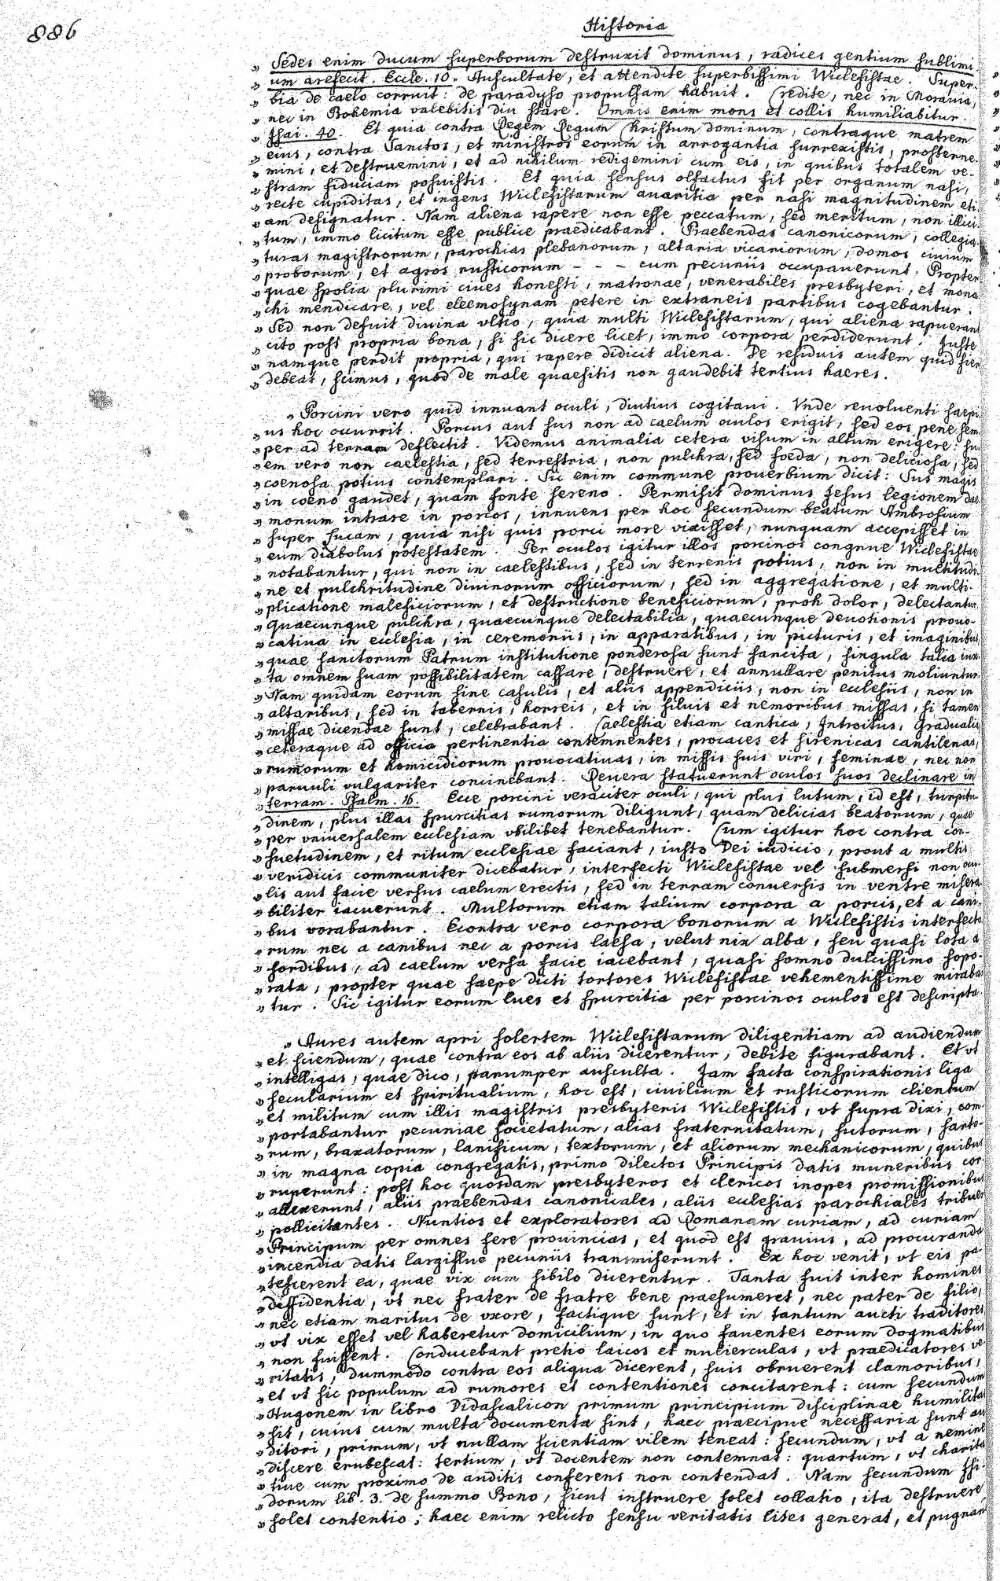 886
Historia
„ Sedes enim ducum superborum destruxit dominus, radices gentium sublimi
„ um arefecit. Eccle. 10. Auscultate, et attendite superbissimi Wiclefistae. Super-
„ bia de caelo corruit: de paradyso propulsam habuit. Credite, nec in Moravia,
„ nec in Bohemia valebitis diu stare. Omnis enim mons et collis humiliabitur
„ Esai. 40. Et quia contra Regem Regum Christum dominum, contraque matrem
„ eius, contra Sanctos, et ministros eorum in arrogantia surrexistis, prosterne-
„ mini, et destruemini, et ad nihilum redigemini cum eis, in quibus totalem ve-
„ stram fiduciam posuistis. Et quia sensus olfactus fit per organum nasi,
„ recte cupiditas, et ingens Wiclefistarum auaritia per nasi magnitudinem eti-
„ am designatur. Nam aliena rapere non esse peccatum, sed meritum, non illici-
„ tum, immo licitum esse publice praedicabant. Praebendas canonicorum, collegia-
„ turas magistrorum, parochias plebanorum, altaria vicariorum, domos ciuium
„ proborum, et agros rusticorum - - - cum pecuniis occupauerunt. Propter
„ quae spolia plurimi ciues honesti, matronae, venerabiles presbyteri, et mona-
„ chi mendicare, vel eleemosynam petere in extraneis partibus cogebantur.
„ Sed non defuit diuina vltio, quia multi Wiclefistarum, qui aliena rapuerant
„ cito post propria bona, si sic dicere licet, immo corpora perdiderunt. Juste
„ namque perdit propria, qui rapere didicit aliena. De residuis autem quid fieri
„ debeat, scimus, quod de male quaesitis non gaudebit tertius haeres.
„ Porcini vero quid innuant oculi, diutius cogitaui. Vnde reuoluenti saepi-
„ us hoc occurrit. Porcus aut sus non ad caelum oculos erigit, sed eos pene sem-
„ per ad terram deflectit. Videmus animalia cetera visum in altum erigere: su-
„ em vero non caelestia, sed terrestria, non pulchra, sed foeda, non deliciosa, sed
„ coenosa potius contemplari. Sic enim commune prouerbium dicit: Sus magis
„ in coeno gaudet, quam fonte sereno. Permisit dominus Jesus legionem dae-
„ monum intrare in porcos, innuens per hoc secundum beatum Ambrosium
„ super Lucam, quia nisi quis porci more vixisset, nunquam accepisset in
„ eum diabolus potestatem. Per oculos igitur illos porcinos congrue Wiclefistae
„ notabantur, qui non in caelestibus, sed in terrenis potius, non in multitudi-
„ ne et pulchritudine diuinorum officiorum, sed in aggregatione, et multi-
„ plicatione maleficiorum, et destructione beneficiorum, proh dolor, delectantur.
„ Quaecunque pulchra, quaecunque delectabilia, quaecunque deuotionis prouo-
„ catiua in ecclesia, in ceremoniis, in apparatibus, in picturis, et imaginibus
„ quae sanctorum Patrum institutione ponderosa sunt sancita, singula talia iux-
„ ta omnem suam possibilitatem cassare, destruere, et annullare penitus moliuntur.
„ Nam quidam eorum sine casulis, et aliis appendiciis, non in ecclesiis, non in
„ altaribus, sed in tabernis, horreis, et in siluis et nemoribus missas, si tamen
„ missae dicendae sunt, celebrabant. Caelestia etiam cantica, Introitus, Gradualia
„ ceteraque ad officia pertinentia contemnentes, procaces et sirenicas cantilenas,
„ rumorum et homicidiorum prouocatiuas, in missis suis viri, feminae, nec non
„ paruuli vulgariter concinebant. Reuera statuerunt oculos suos declinare in
„ terram. Psalm. 16. Ecce porcini veraciter oculi, qui plus lutum, id est, turpitu-
„ dinem, plus illas spurcitias rumorum diligunt, quam delicias beatorum, quae
„ per vniuersalem ecclesiam vbilibet tenebantur. Cum igitur hoc contra con-
„ suetudinem, et ritum ecclesiae faciant, iusto Dei iudicio, prout a multis
„ veridicis communiter dicebatur, interfecti Wiclefistae vel submersi non ocu-
„ lis aut facie versus caelum erectis, sed in terram conuersis in ventre misera-
„ biliter iacuerunt. Multorum etiam talium corpora a porcis, et a cani-
„ bus vorabantur. Econtra vero corpora bonorum a Wiclefistis interfecto-
„ rum nec a canibus nec a porcis laesa, velut nix alba, seu quasi lota a
„ sordibus, ad caelum versa facie iacebant, quasi somno dulcissimo sopo-
„ rata, propter quae saepe dicti tortores Wiclefistae vehementissime miraban-
„ tur. Sic igitur eorum lues et spurcitia per porcinos oculos est descripta.
„ Aures autem apri solertem Wiclefistarum diligentiam ad audiendum
„ et sciendum, quae contra eos ab aliis dicerentur, debite figurabant. Et vt
„ intelligas, quae dico, parumper ausculta. Jam facta conspirationis liga
„ secularium et spiritualium, hoc est, ciuilium et rusticorum clientum
„ et militum cum illis magistris presbyteris Wiclefistis, vt supra dixi, com-
„ portabantur pecuniae societatum, alias fraternitatum, sutorum, sarto-
„ rum, braxatorum, lanificum, textorum, et aliorum mechanicorum, quibus
„ in magna copia congregatis, primo dilectos Principis datis muneribus cor-
„ ruperunt: post hoc quosdam presbyteros et clericos inopes promissionibus
„ allexerunt, aliis praebendas canonicales, aliis ecclesias parochiales tribuere
„ pollicitantes. Nuntios et exploratores ad Romanam curiam, ad curiam
„ Principum per omnes fere prouincias, et quod est grauius, ad procuranda
„ incendia datis largiflue pecuniis transmiserunt. Ex hoc venit, vt eis pa-
„ tescerent ea, quae vix cum sibilo dicerentur. Tanta fuit inter homines
„ diffidentia, vt nec frater de fratre bene praesumeret, nec pater de filio,
„ nec etiam maritus de vxore, factique sunt, et in tantum aucti traditores,
„ vt vix esset vel haberetur domicilium, in quo fauentes eorum dogmatibus
„ non fuissent. Conducebant pretio laicos et mulierculas, vt praedicatores ve-
„ ritatis, dummodo contra eos aliqua dicerent, suis obruerent clamoribus,
„ et vt sic populum ad rumores et contentiones concitarent: cum secundum
„ Hugonem in libro Didascalicon primum principium disciplinae humilitas
„ sit, cuius cum multa documenta sint, haec praecipue necessaria sunt au-
„ ditori, primum, vt nullam scientiam vilem teneat: secundum, vt a nemine
„ discere erubescat: tertium, vt docentem non contemnat: quartum, vt charita-
„ tiue cum proximo de auditis conferens non contendat. Nam secundum Isi-
„ dorum lib. 3. de summo Bono, sicut instruere solet collatio, ita destruere
„ solet contentio; haec enim relicto sensu veritatis lites generat, et pugnan-